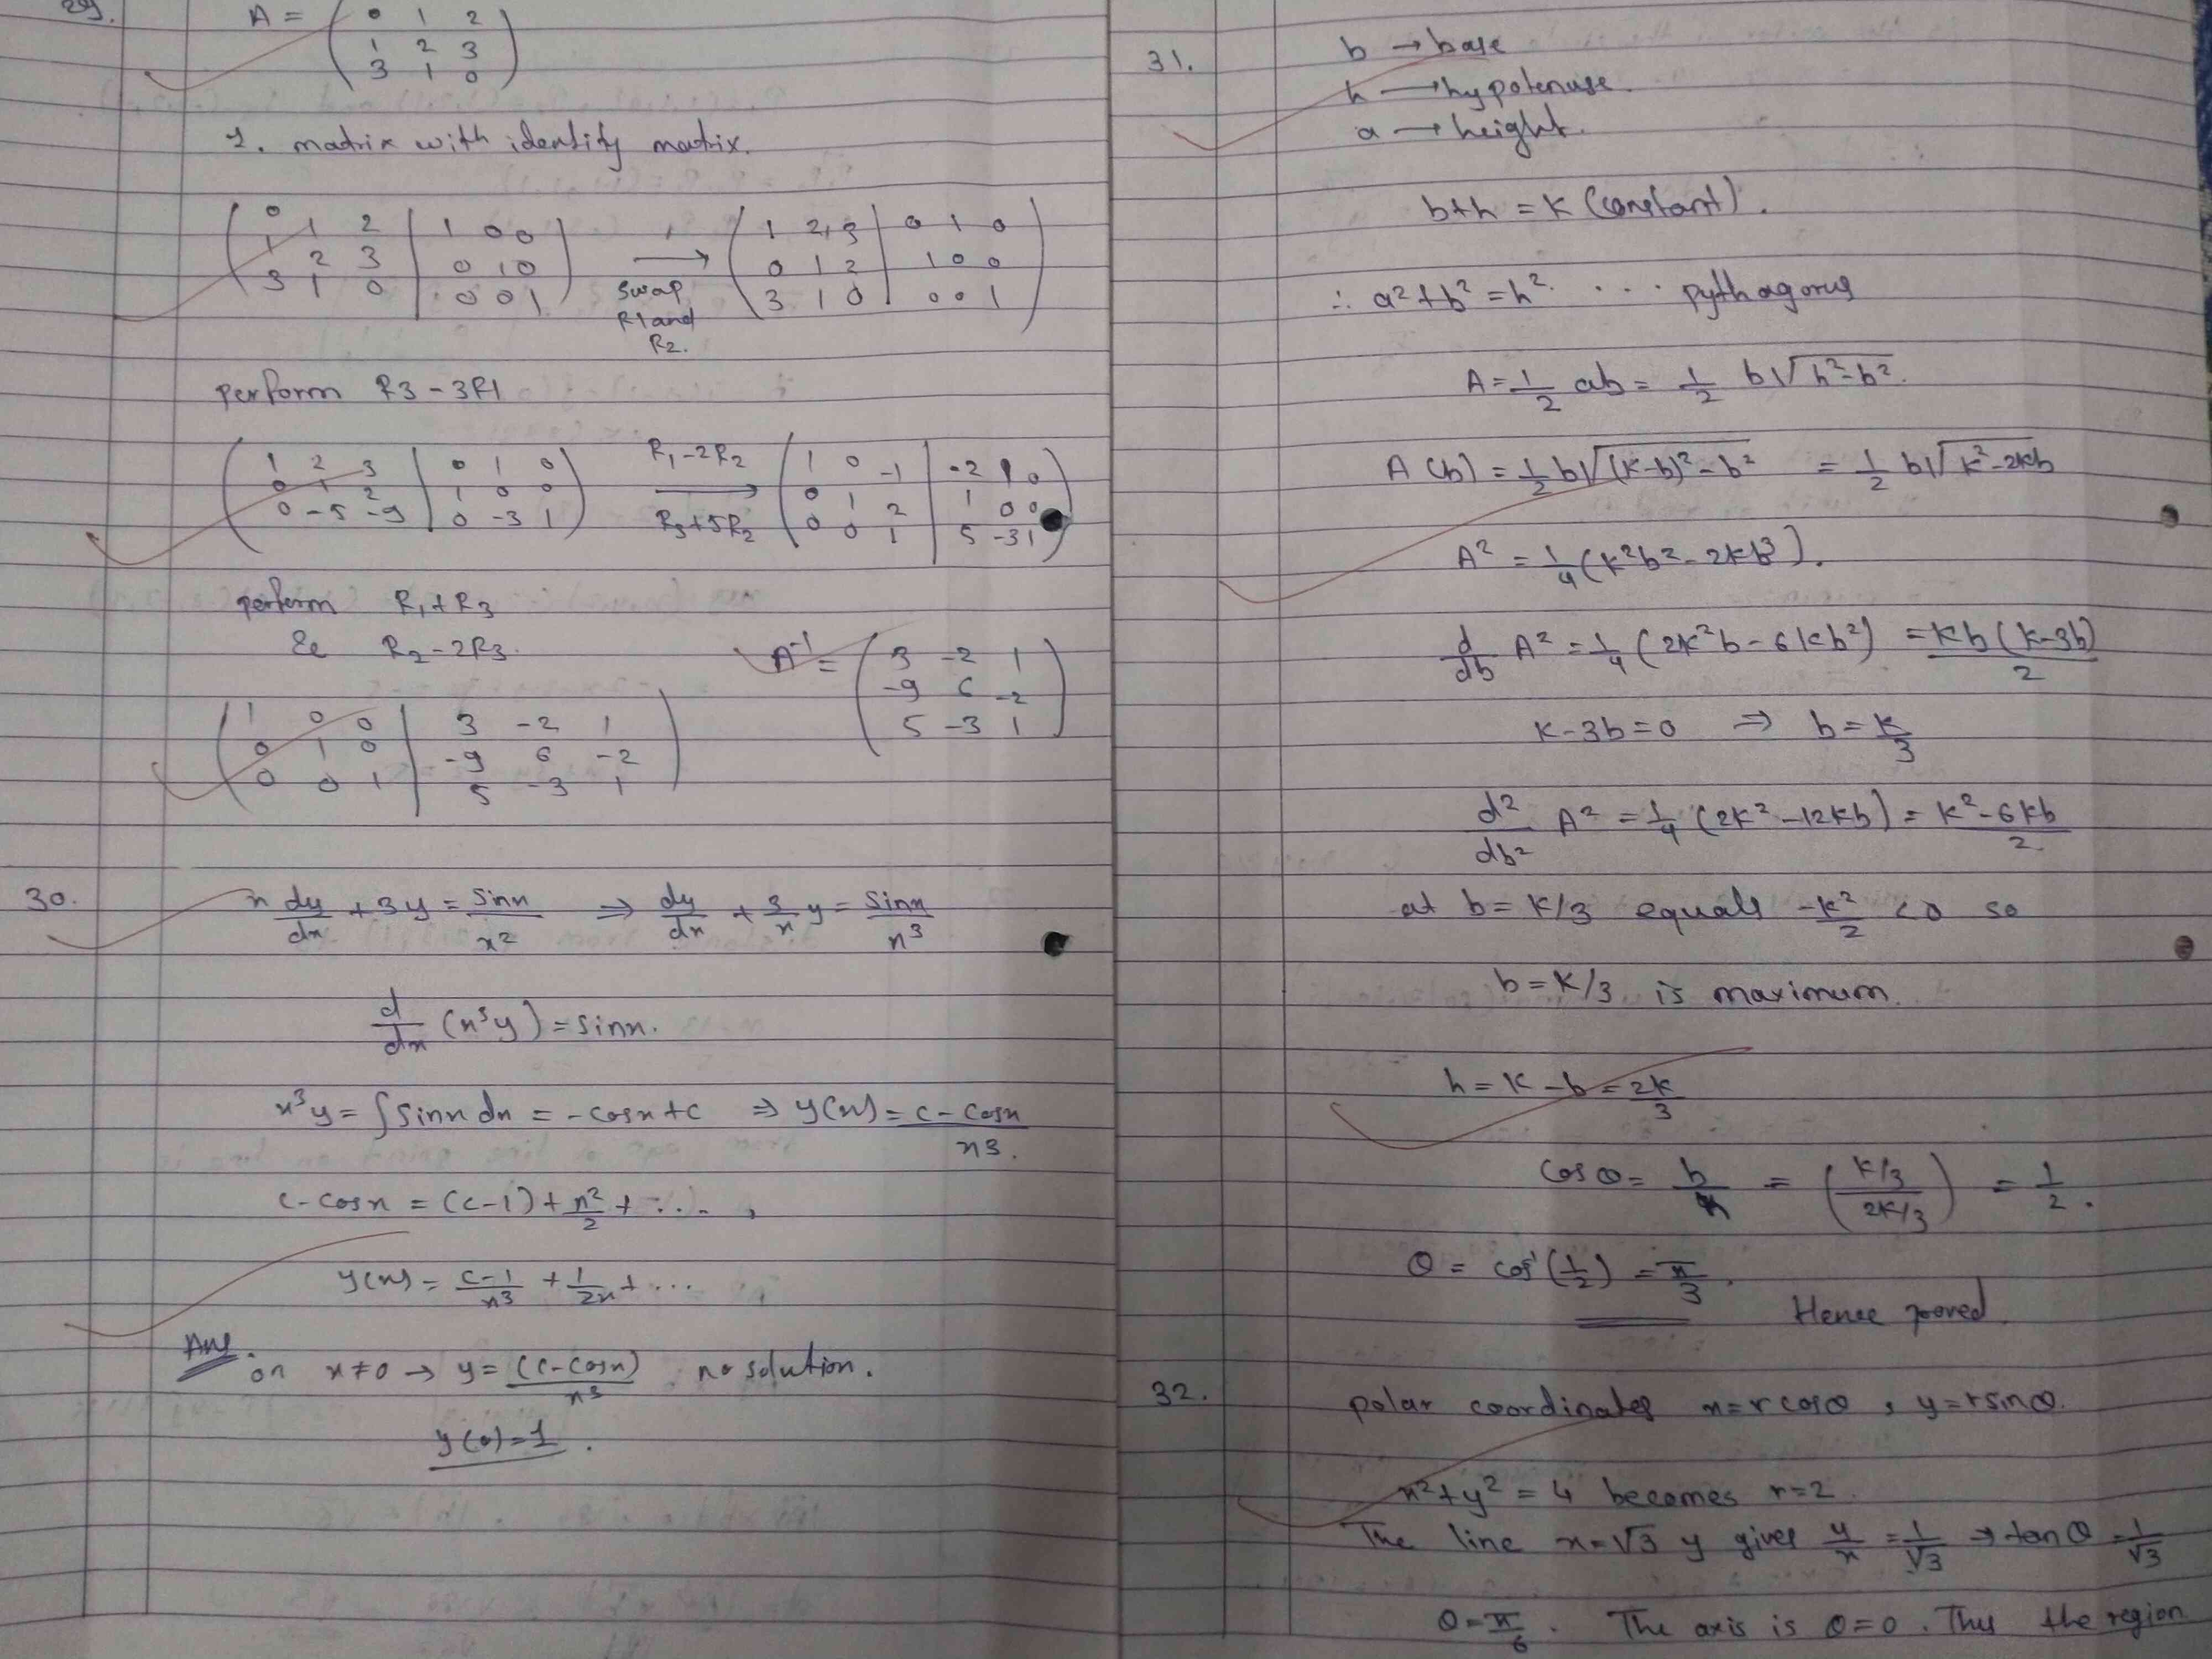 29.
A = ( 0 1 2
1 2 3
3 1 0 )
1. matrix with identity matrix.
( 0 1 2 | 1 0 0
1 2 3 | 0 1 0
3 1 0 | 0 0 1 ) → swap R1 and R2. ( 1 2 3 | 0 1 0
0 1 2 | 1 0 0
3 1 0 | 0 0 1 )
perform R3 - 3R1
( 1 2 3 | 0 1 0
0 1 2 | 1 0 0
0 -5 -9 | 0 -3 1 ) R₁-2R₂ → R₃+5R₂ ( 1 0 -1 | -2 1 0
0 1 2 | 1 0 0
0 0 1 | 5 -3 1 )
perform R₁+R₃
& R₂-2R₃.
A⁻¹ = ( 3 -2 1
-9 6 -2
5 -3 1 )
( 1 0 0 | 3 -2 1
0 1 0 | -9 6 -2
0 0 1 | 5 -3 1 )
30. x dy/dx + 3y = sinx/x² ⇒ dy/dx + 3/x y = sinx/x³
d/dx (x³y) = sinx.
x³y = ∫sinx dx = -cosx+c ⇒ y(x) = c-cosx/x3.
c-cosx = (c-1) + x²/2 + ...,
y(x) = c-1/x³ + 1/2x + ...
Ans. on x≠0 → y = (c-cosx)/x³ no solution.
y(0)=1.
31. b → base
h → hypotenuse.
a → height.
b+h = K (constant).
∴ a²+b² = h². ... pythagorus
A = 1/2 ab = 1/2 b√h²-b².
A(b) = 1/2 b√(K-b)²-b² = 1/2 b√k²-2kb
A² = 1/4 (k²b²-2kb³).
d/db A² = 1/4 (2k²b-6kb²) = kb(k-3b)/2
K-3b=0 ⇒ b = K/3
d²/db² A² = 1/4 (2k²-12kb) = k²-6kb/2
at b = K/3 equals -k²/2 <0 so
b = K/3 is maximum.
h = K-b = 2k/3
cosθ = b/h = (K/3/2K/3) = 1/2.
θ = cos⁻¹(1/2) = π/3.
Hence proved.
32. polar coordinates x=rcosθ, y=rsinθ.
x²+y² = 4 becomes r=2.
The line x=√3 y gives y/x = 1/√3 ⇒ tanθ = 1/√3
θ = π/6. The axis is θ=0. Thus the region